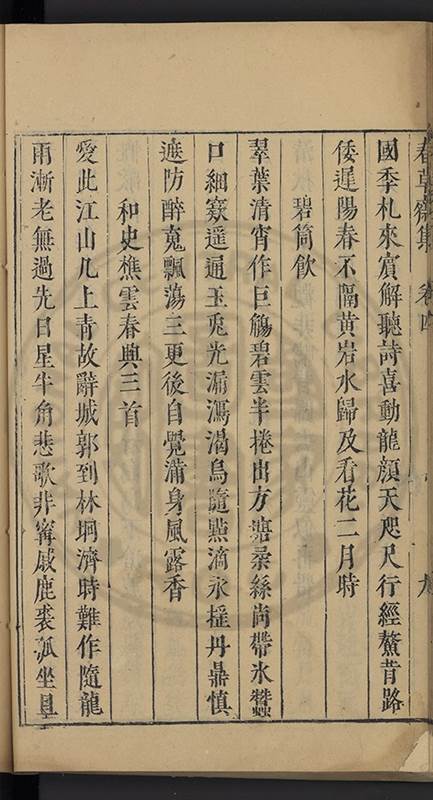 春草齋集 卷四 九
國季札來賓解聽詩喜動龍顏天咫尺行經鰲背路
倭遲陽春不隔黄岩水歸及看花二月時
碧筒飲
翠葉清宵作巨觴碧雲半捲出方塘柔絲尚帶氷蠶
口細竅遥通玉兎光漏瀉渴烏隨㸃滴氷揺丹鼎慎
遮防醉䰟飄蕩三更後自覺滿身風露香
和史樵雲春興三首
愛此江山几上青故辭城郭到林坰濟時難作隨龍
雨漸老無過先日星牛角悲歌非寗戚鹿裘孤坐且